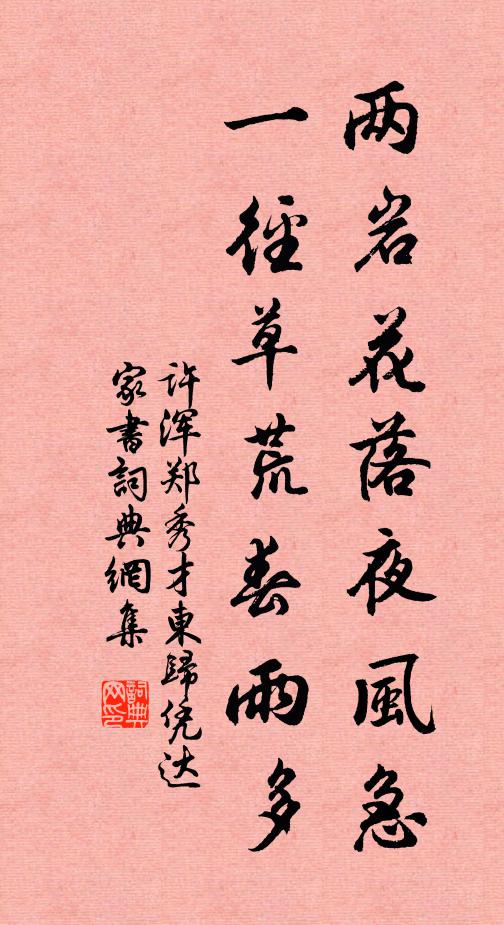 两岩花落夜風急
一徑草荒春雨多
许渾郑秀才東歸凭达
家書詞典網集
詞典网印